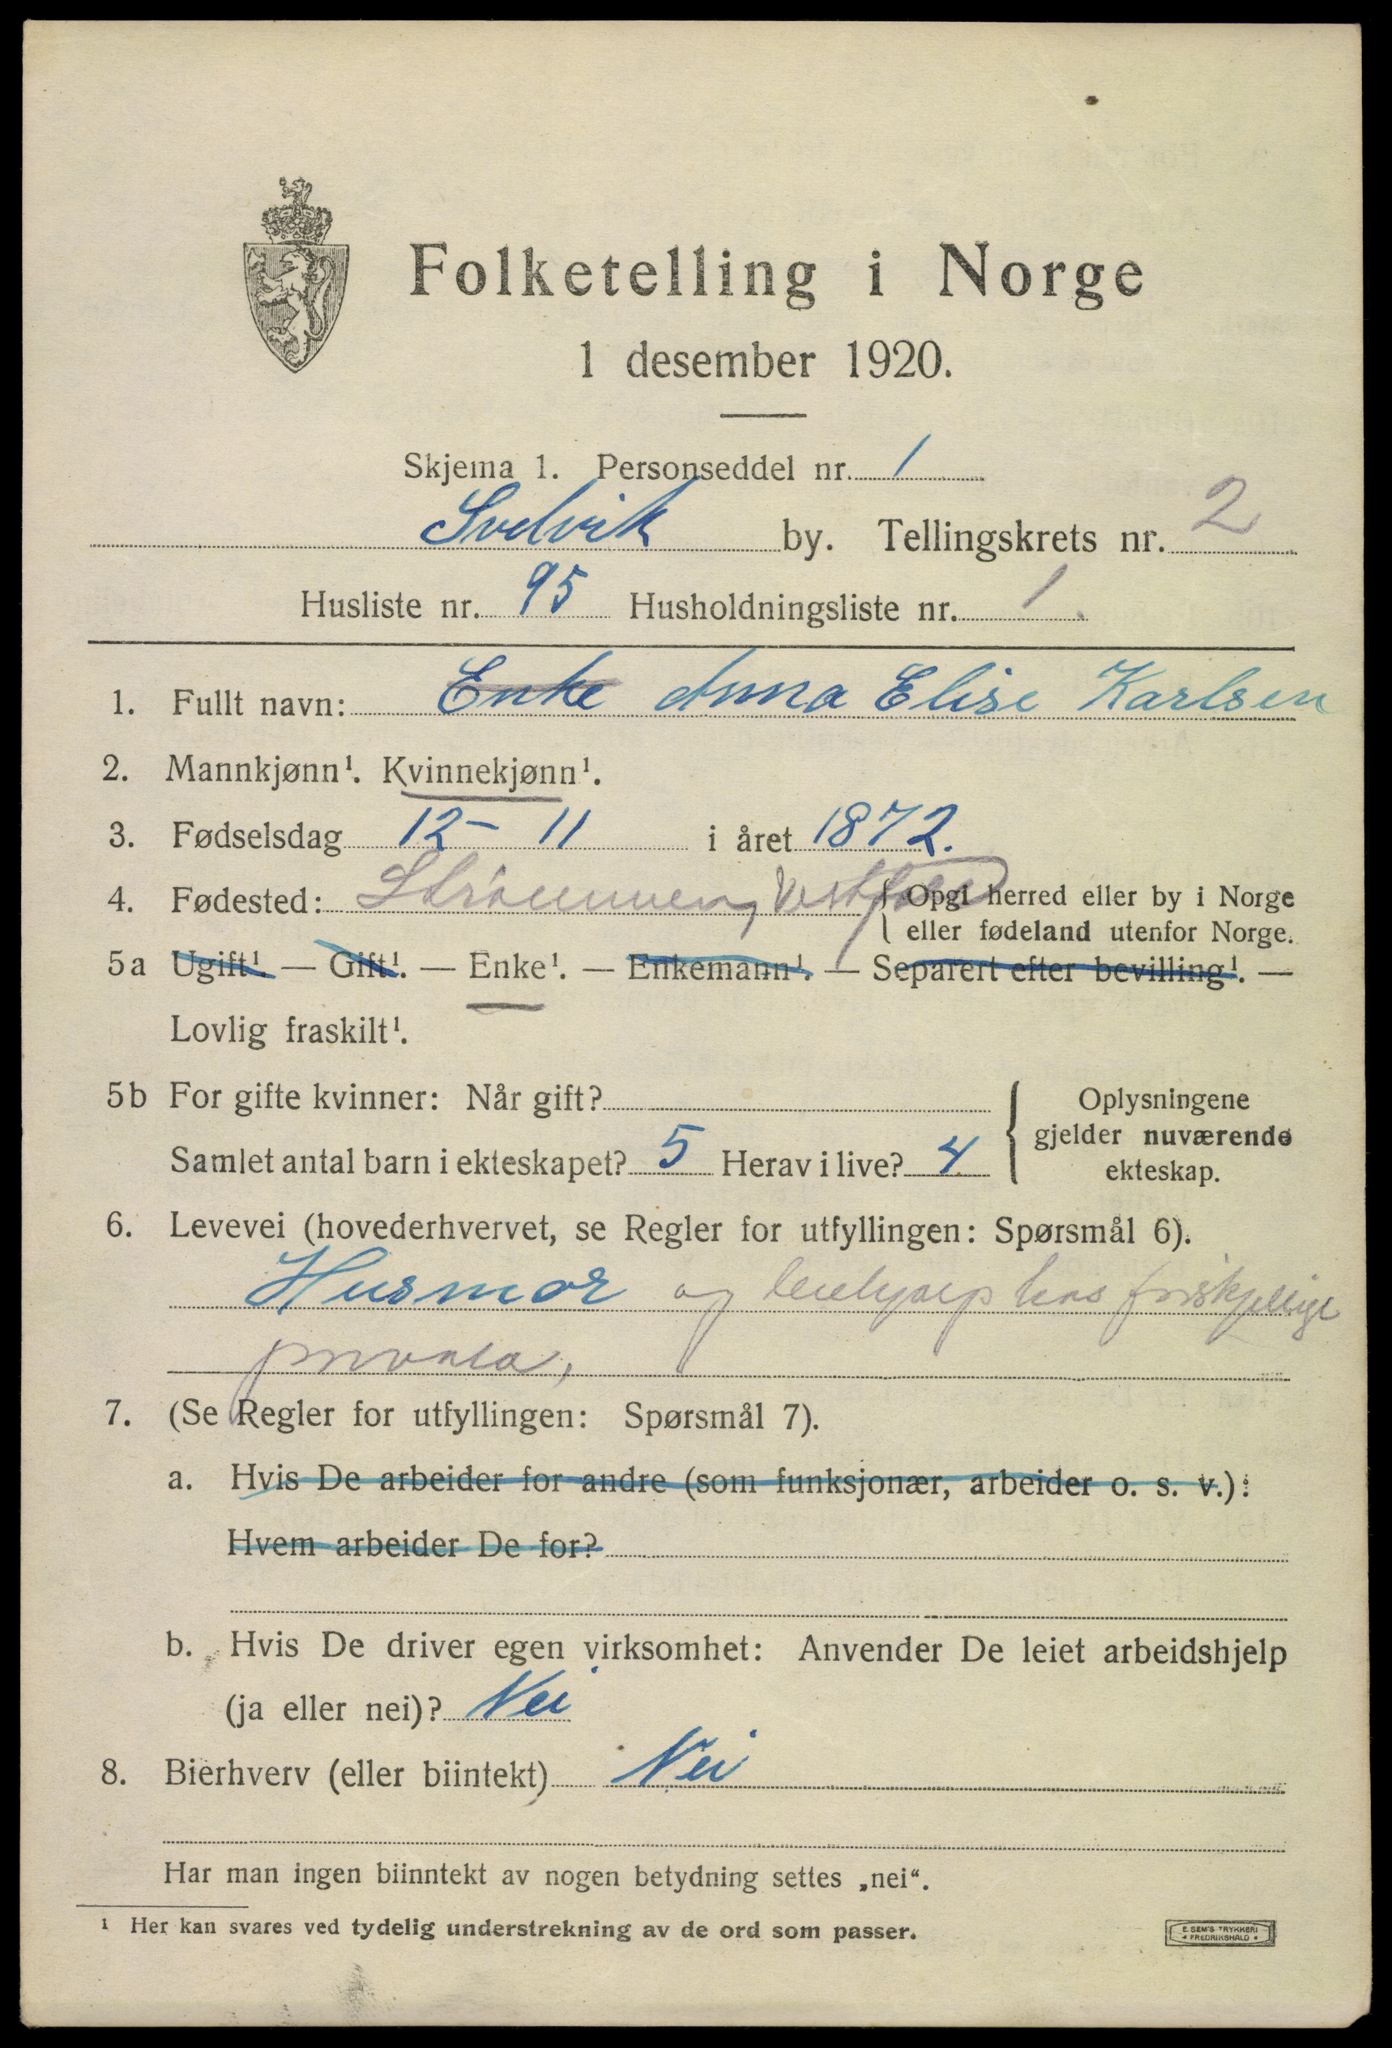 Folketelling i Norge
1 desember 1920.
Skjema 1. Personseddel nr. 1
Svelvik by. Tellingskrets nr. 2
Husliste nr. 95 Husholdningsliste nr. 1.
1. Fullt navn: Enke Anna Elise Karlsen
2. Mannkjønn¹. Kvinnekjønn¹.
3. Fødselsdag 12 - 11 i året 1872.
4. Fødested: Strømmen, Vestfold { Opgi herred eller by i Norge
eller fødeland utenfor Norge.
5a Ugift¹. — Gift¹. — Enke¹. — Enkemann¹. — Separert efter bevilling¹. —
Lovlig fraskilt¹.
5b For gifte kvinner: Når gift?
Samlet antal barn i ekteskapet? 5 Herav i live? 4
{ Oplysningene
gjelder nuværende
ekteskap.
6. Levevei (hovederhvervet, se Regler for utfyllingen: Spørsmål 6).
Husmor og leiehjælp hos forskjellige
private,
7. (Se Regler for utfyllingen: Spørsmål 7).
a. Hvis De arbeider for andre (som funksjonær, arbeider o. s. v.):
Hvem arbeider De for?
b. Hvis De driver egen virksomhet: Anvender De leiet arbeidshjelp
(ja eller nei)? Nei
8. Bierhverv (eller biintekt) Nei
Har man ingen biinntekt av nogen betydning settes „nei“.
¹ Her kan svares ved tydelig understrekning av de ord som passer.
E. SEM'S TRYKKERI
FREDRIKSHALD